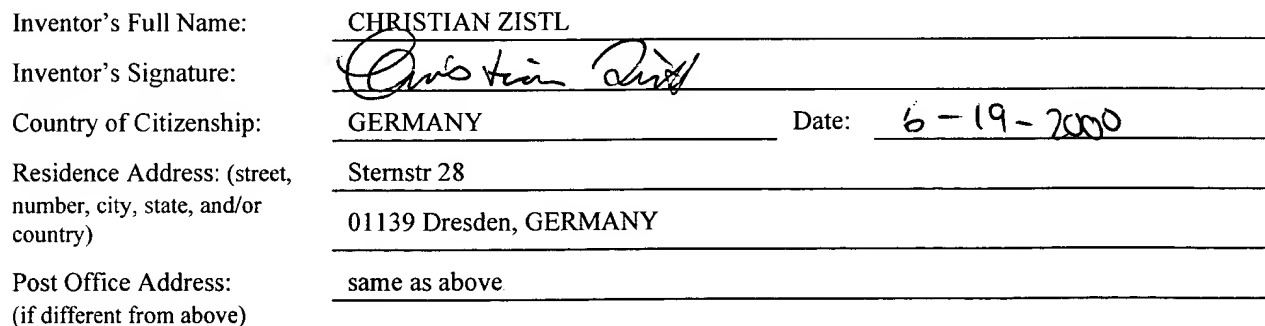 Inventor's Full Name: CHRISTIAN ZISTL
Inventor's Signature: Christian Zistl
Country of Citizenship: GERMANY Date: 6-19-2000
Residence Address: (street, Sternstr 28
number, city, state, and/or
country) 01139 Dresden, GERMANY
Post Office Address: same as above
(if different from above)